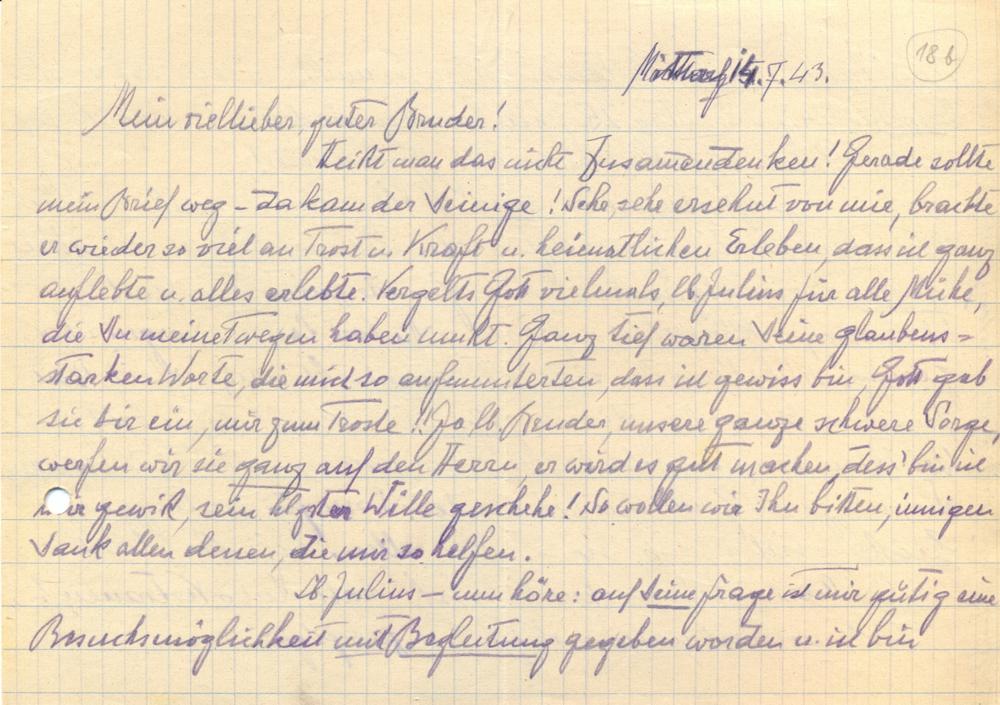 18b
14.7.43.
Mein viellieber, guter Bruder!
Heißt man das nicht Zusamendenken! Gerade sollte
mein Brief weg – da kam der Deinige! Sehr, sehr ersehnt von mir, brachte
er wieder so viel an Trost u. Kraft u. heimatlichen Erleben, dass ich ganz
auflebte u. alles erlebte. Vergelts Gott vielmals, lb. Julius für alle Mühe,
die Du meinetwegen haben mußt. Ganz tief waren Deine glaubens=
starken Worte, die mich so aufmunterten, dass ich gewiss bin, Gott gab
sie dir ein, mir zum Troste!! Ja lb. Bruder, unsere ganze schwere Sorge,
werfen wir sie ganz auf den Herrn, er wird es gut machen, dess' bin ich
mir gewiß, sein hlgster Wille geschehe! So wollen wir Ihn bitten, innigen
Dank allen denen, die mir so helfen.
Lb. Julius – nun höre: auf Deine Frage ist mir gütig eine
Besuchsmöglichkeit mit Begleitung gegeben worden u. ich bin